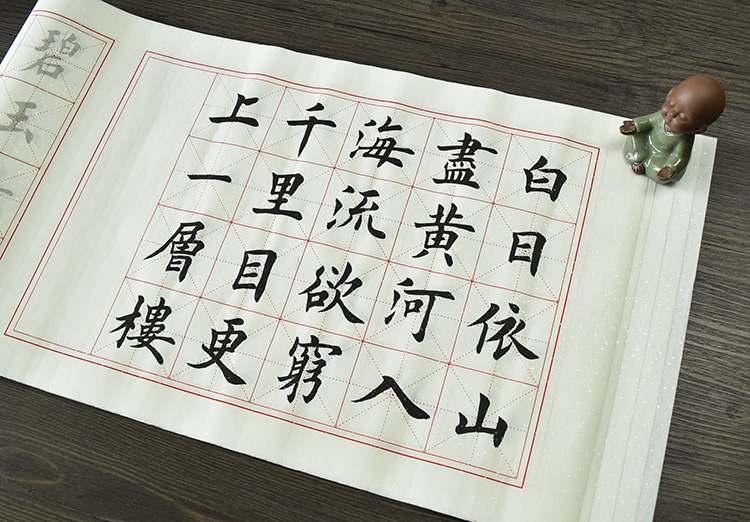 白日依山
盡黄河入
海流欲窮
千里目更
上一層樓
碧玉